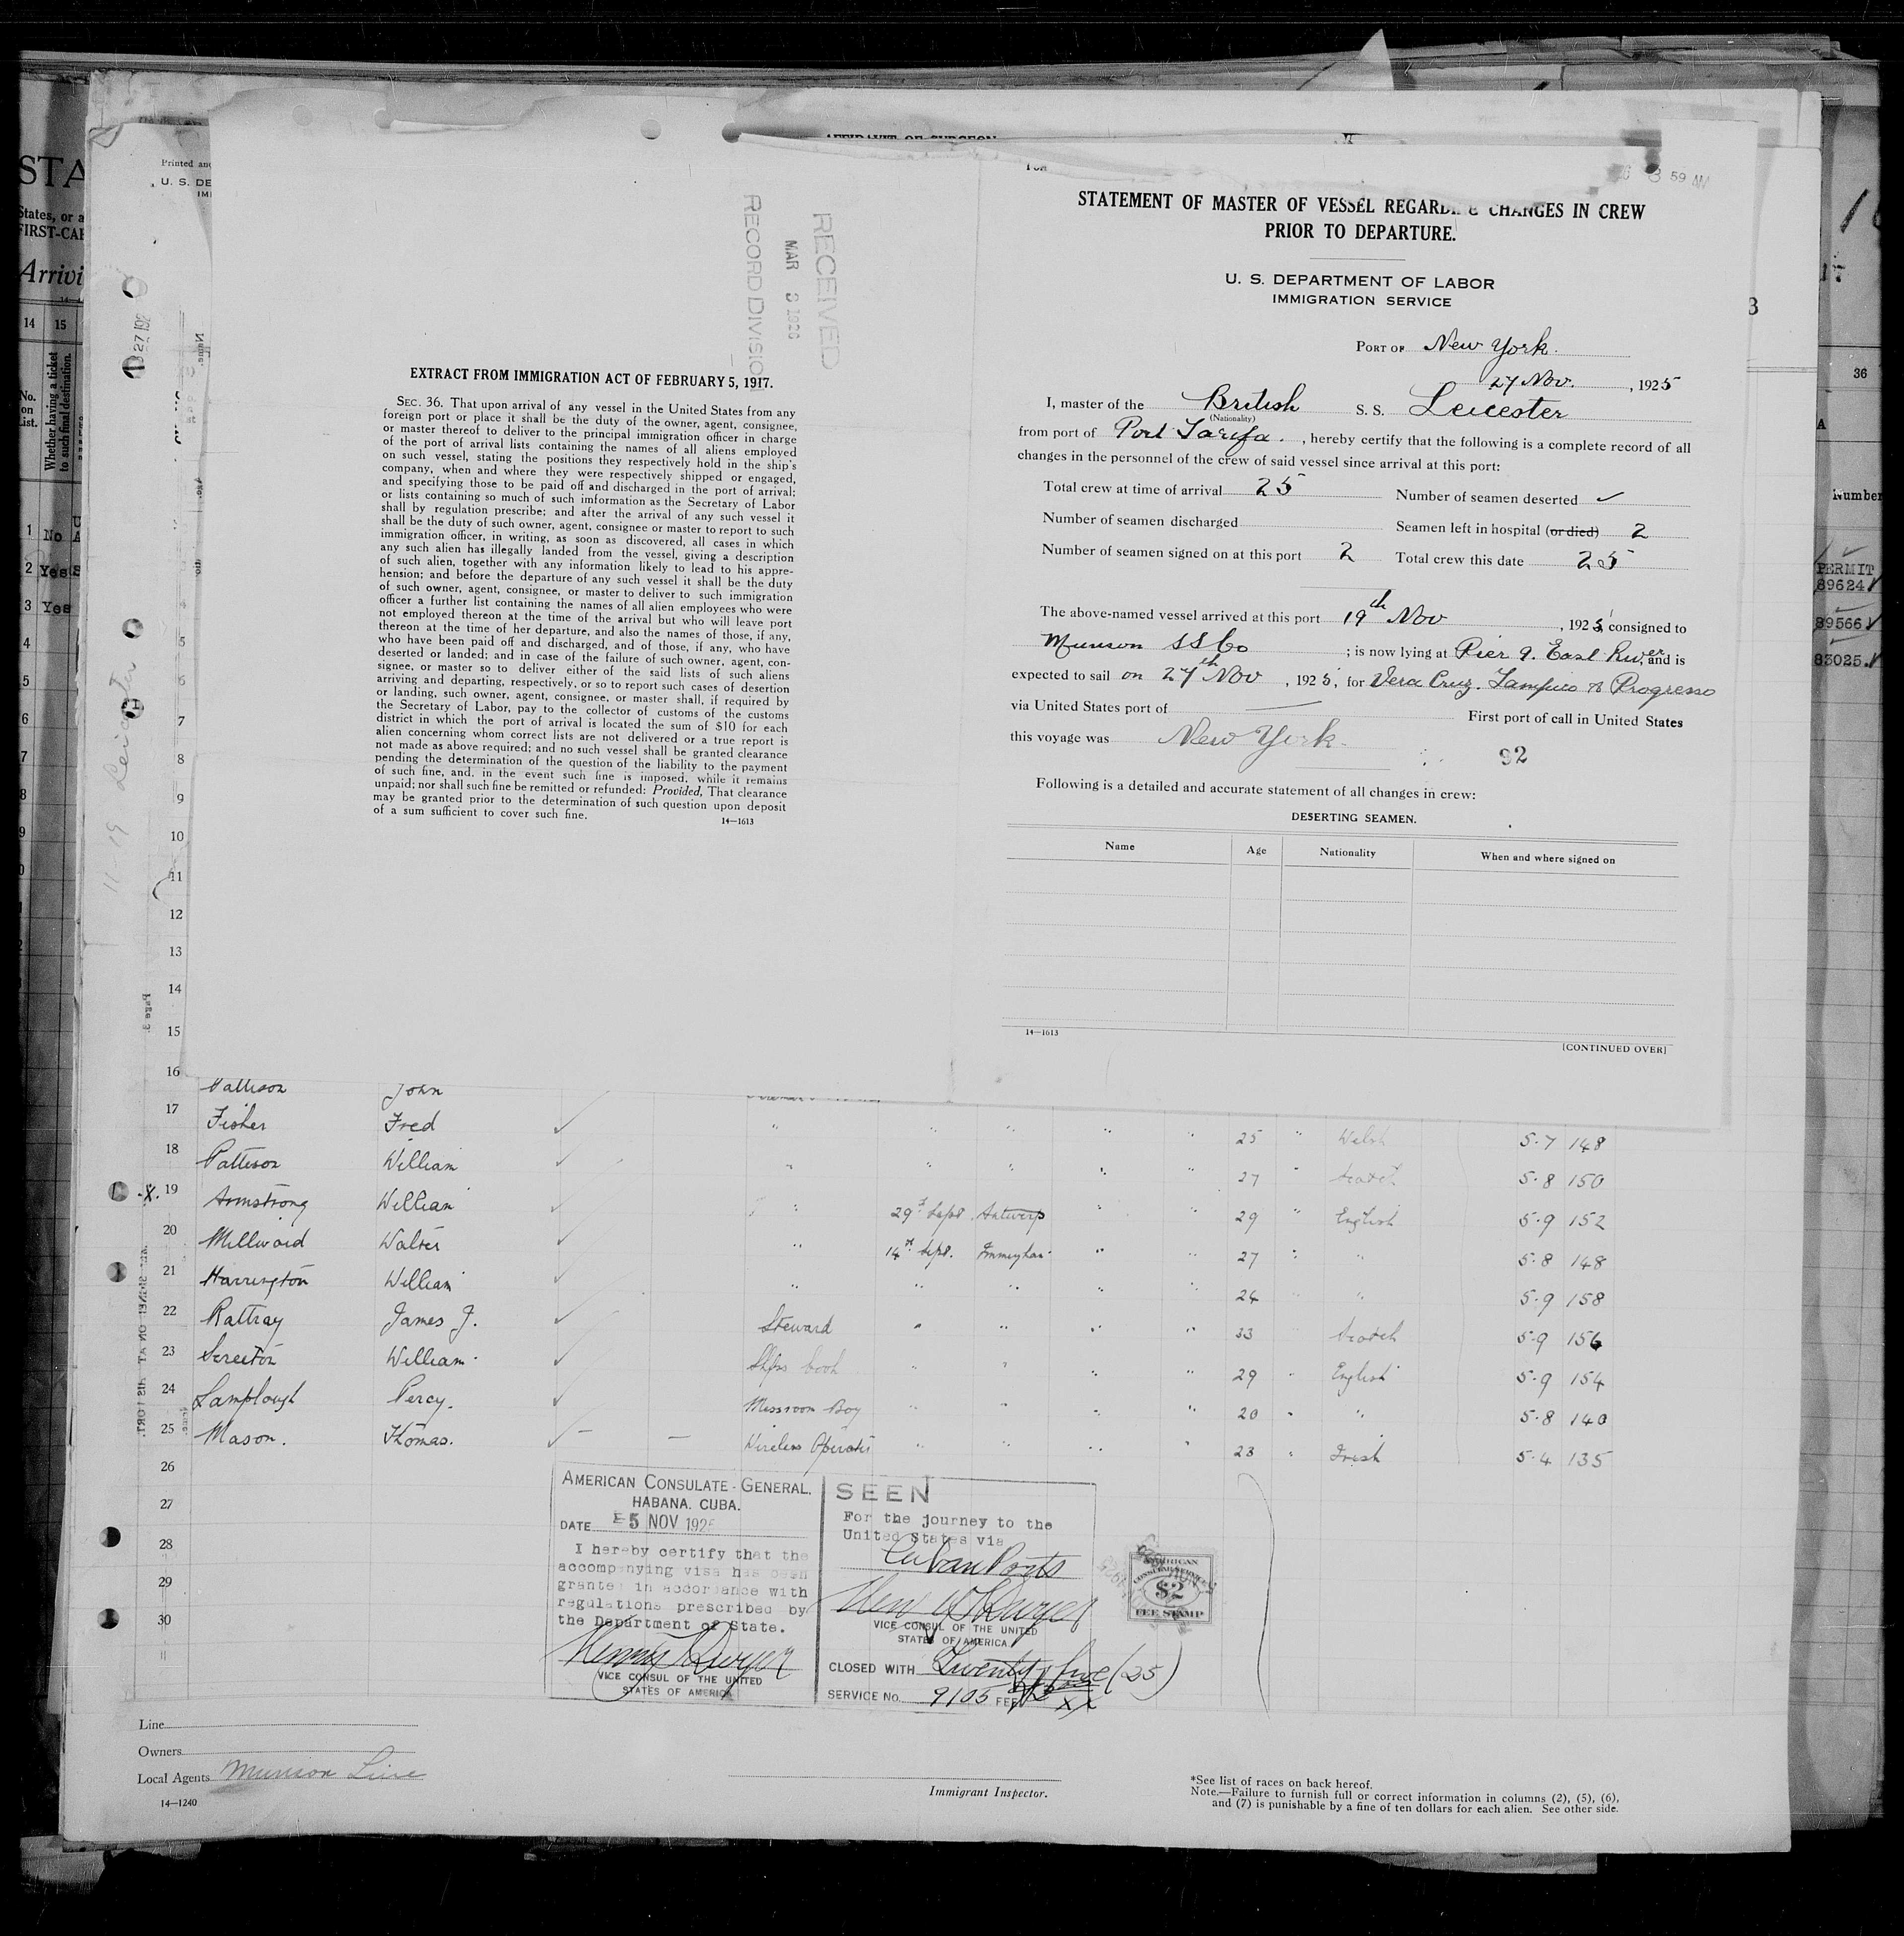 AFFIDAVIT OF SURGEON
STA
States, or a
FIRST-CAB
Arrivi
14
15
No.
on
List.
Whether having a ticket
to such final destination.
1 No
2 Yes S
3 Yes
Printed and
U. S. DE
IMI
RECEIVED
MAR 3 1926
RECORD DIVISION
EXTRACT FROM IMMIGRATION ACT OF FEBRUARY 5, 1917.
SEC. 36. That upon arrival of any vessel in the United States from any
foreign port or place it shall be the duty of the owner, agent, consignee,
or master thereof to deliver to the principal immigration officer in charge
of the port of arrival lists containing the names of all aliens employed
on such vessel, stating the positions they respectively hold in the ship's
company, when and where they were respectively shipped or engaged,
and specifying those to be paid off and discharged in the port of arrival;
or lists containing so much of such imformation as the Secretary of Labor
shall by regulation prescribe; and after the arrival of any such vessel it
shall be the duty of such owner, agent, consignee or master to report to such
immigration officer, in writing, as soon as discovered, all cases in which
any such alien has illegally landed from the vessel, giving a description
of such alien, together with any information likely to lead to his appre-
hension; and before the departure of any such vessel it shall be the duty
of such owner, agent, consignee, or master to deliver to such immigration
officer a further list containing the names of all alien employees who were
not employed thereon at the time of the arrival but who will leave port
thereon at the time of her departure, and also the names of those, if any,
who have been paid off and discharged, and of those, if any, who have
deserted or landed; and in case of the failure of such owner, agent, con-
signee, or master so to deliver either of the said lists of such aliens
arriving and departing, respectively, or so to report such cases of desertion
or landing, such owner, agent, consignee, or master shall, if required by
the Secretary of Labor, pay to the collector of customs of the customs
district in which the port of arrival is located the sum of $10 for each
alien concerning whom correct lists are not delivered or a true report is
not made as above required; and no such vessel shall be granted clearance
pending the determination of the question of the liability to the payment
of such fine, and, in the event such fine is imposed, while it remains
unpaid; nor shall such fine be remitted or refunded: Provided, That clearance
may be granted prior to the determination of such question upon deposit
of a sum sufficient to cover such fine.
14—1613
8 59 AM
STATEMENT OF MASTER OF VESSEL REGARDING CHANGES IN CREW
PRIOR TO DEPARTURE.
U. S. DEPARTMENT OF LABOR
IMMIGRATION SERVICE
PORT OF New York.
27 Nov. , 1925
I, master of the British S. S. Leicester
(Nationality)
from port of Port Tarifa. , hereby certify that the following is a complete record of all
changes in the personnel of the crew of said vessel since arrival at this port:
Total crew at time of arrival 25 Number of seamen deserted ✓
Number of seamen discharged Seamen left in hospital (or died) 2
Number of seamen signed on at this port 2 Total crew this date 25
The above-named vessel arrived at this port 19th Nov , 1925, consigned to
Munson SS Co ; is now lying at Pier 9. East River, and is
expected to sail on 27th Nov , 1925, for Vera Cruz. Tampico & Progresso
via United States port of — First port of call in United States
this voyage was New York.
92
Following is a detailed and accurate statement of all changes in crew:
DESERTING SEAMEN.
Name Age Nationality When and where signed on
14—1613
[CONTINUED OVER]
36
Number
PERMIT
89624
89566
83025
11-19 Leicester
4
5
6
7
8
9
10
11
12
13
14
15
16 Pattison John
17 Fisher Fred ✓ " " " " " 25 " Welsh 5-7 148
18 Pattison William ✓ " " " " " 27 " Scotch 5-8 150
X. 19 Armstrong William ✓ " 29th Sept. Antwerp " " 29 " English 5-9 152
20 Millward Walter ✓ " 14th Sept. Immingham " " 27 " " 5-8 148
21 Harrington William ✓ " " " " " 24 " " 5-9 158
22 Rattray James J. ✓ Steward " " " " 33 Scotch 5-9 156
23 Sereiton William ✓ Ships Cook " " " " 29 " English 5-9 154
24 Lamplough Percy. ✓ Messroom Boy " " " " 20 " " 5-8 140
25 Mason. Thomas. ✓ — — Wireless Operator " " " " 23 " Irish 5-4 135
26
27
28
29
30
AMERICAN CONSULATE-GENERAL.
HABANA. CUBA.
DATE 5 NOV 1925
I hereby certify that the
accompanying visa has been
granted in accordance with
regulations prescribed by
the Department of State.
VICE CONSUL OF THE UNITED
STATES OF AMERICA
SEEN
For the journey to the
United States via
Cuban Ports
VICE CONSUL OF THE UNITED
STATES OF AMERICA
CLOSED WITH Twenty five (25)
SERVICE No. 9105 FEE
AMERICAN
CONSULAR SERVICE
$2
FEE STAMP
Line
Owners
Local Agents Munson Line
14—1240
Immigrant Inspector.
*See list of races on back hereof.
Note.—Failure to furnish full or correct information in columns (2), (5), (6),
and (7) is punishable by a fine of ten dollars for each alien. See other side.